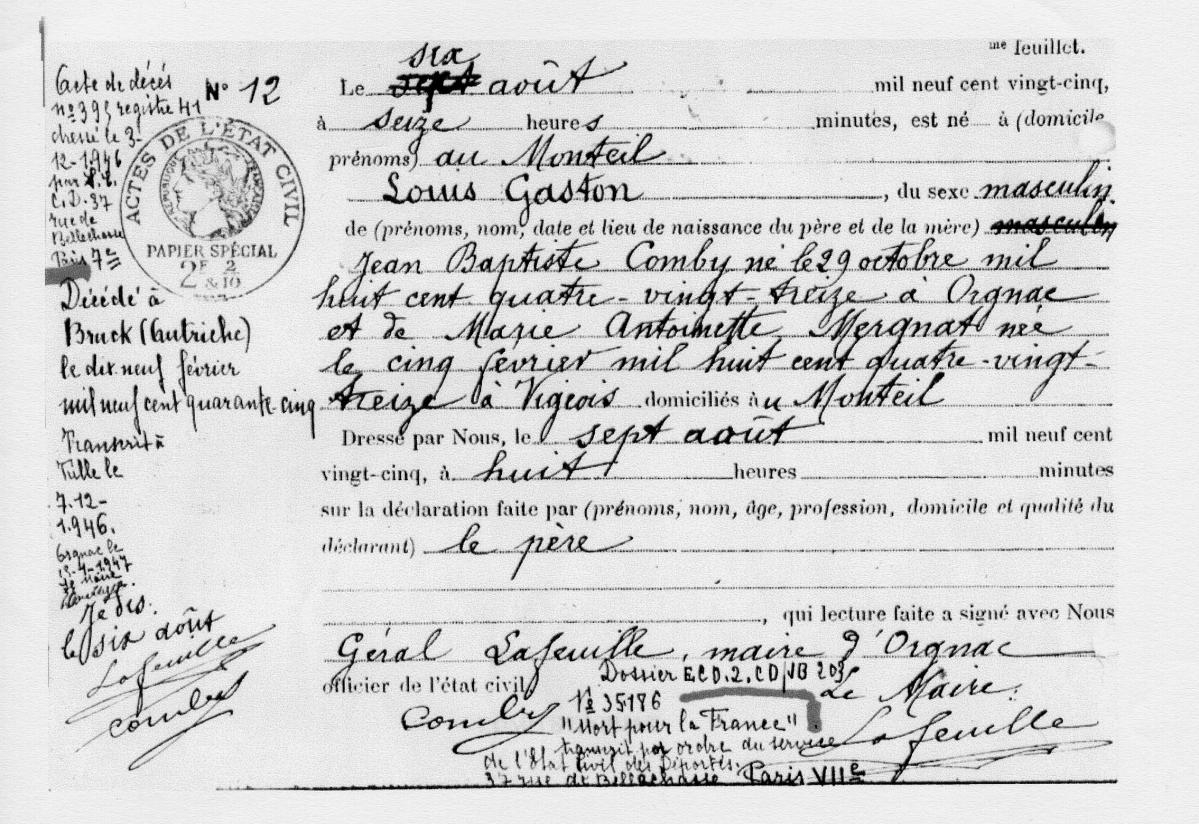 me feuillet.
six
Le sept août mil neuf cent vingt-cinq,
à seize heures minutes, est né à (domicile,
prénoms) au Monteil
Louis Gaston, du sexe masculin
de (prénoms, nom, date et lieu de naissance du père et de la mère) masculin
Jean Baptiste Comby né le 29 octobre mil
huit cent quatre-vingt-treize à Orgnac
et de Marie Antoinette Mergnat née
le cinq février mil huit cent quatre-vingt-
treize à Vigeois domiciliés à u Monteil
Dressé par Nous, le sept août mil neuf cent
vingt-cinq, à huit heures minutes
sur la déclaration faite par (prénoms, nom, âge, profession, domicile et qualité du
déclarant) le père
, qui lecture faite a signé avec Nous
Géral Lafeuille, maire d'Orgnac
officier de l'état civil
Le Maire:
Comby
Lafeuille
Dossier E.C.D.2.CD/JB 203
No 35186
"Mort pour la France"
transcrit par ordre du service
de l'Etat Civil des Déportés.
37 rue de Bellechasse Paris VIIe
No 12
ACTES DE L'ÉTAT CIVIL
RÉPUBLIQUE FRANÇAISE
PAPIER SPÉCIAL
2F 2/10
&
Acte de décés
no 395 registre 41
dressé le 3-
12-1946
par
C.D. 37
rue de
Bellechasse
7e
Décédé à
Bruck (Autriche)
le dix neuf février
mil neuf cent quarante-cinq
Transcrit à
Tulle le
7.12-
1.946.
Orgnac le
-4-1947
Le Maire
Je dis.
le six août
Lafeuille
Comby